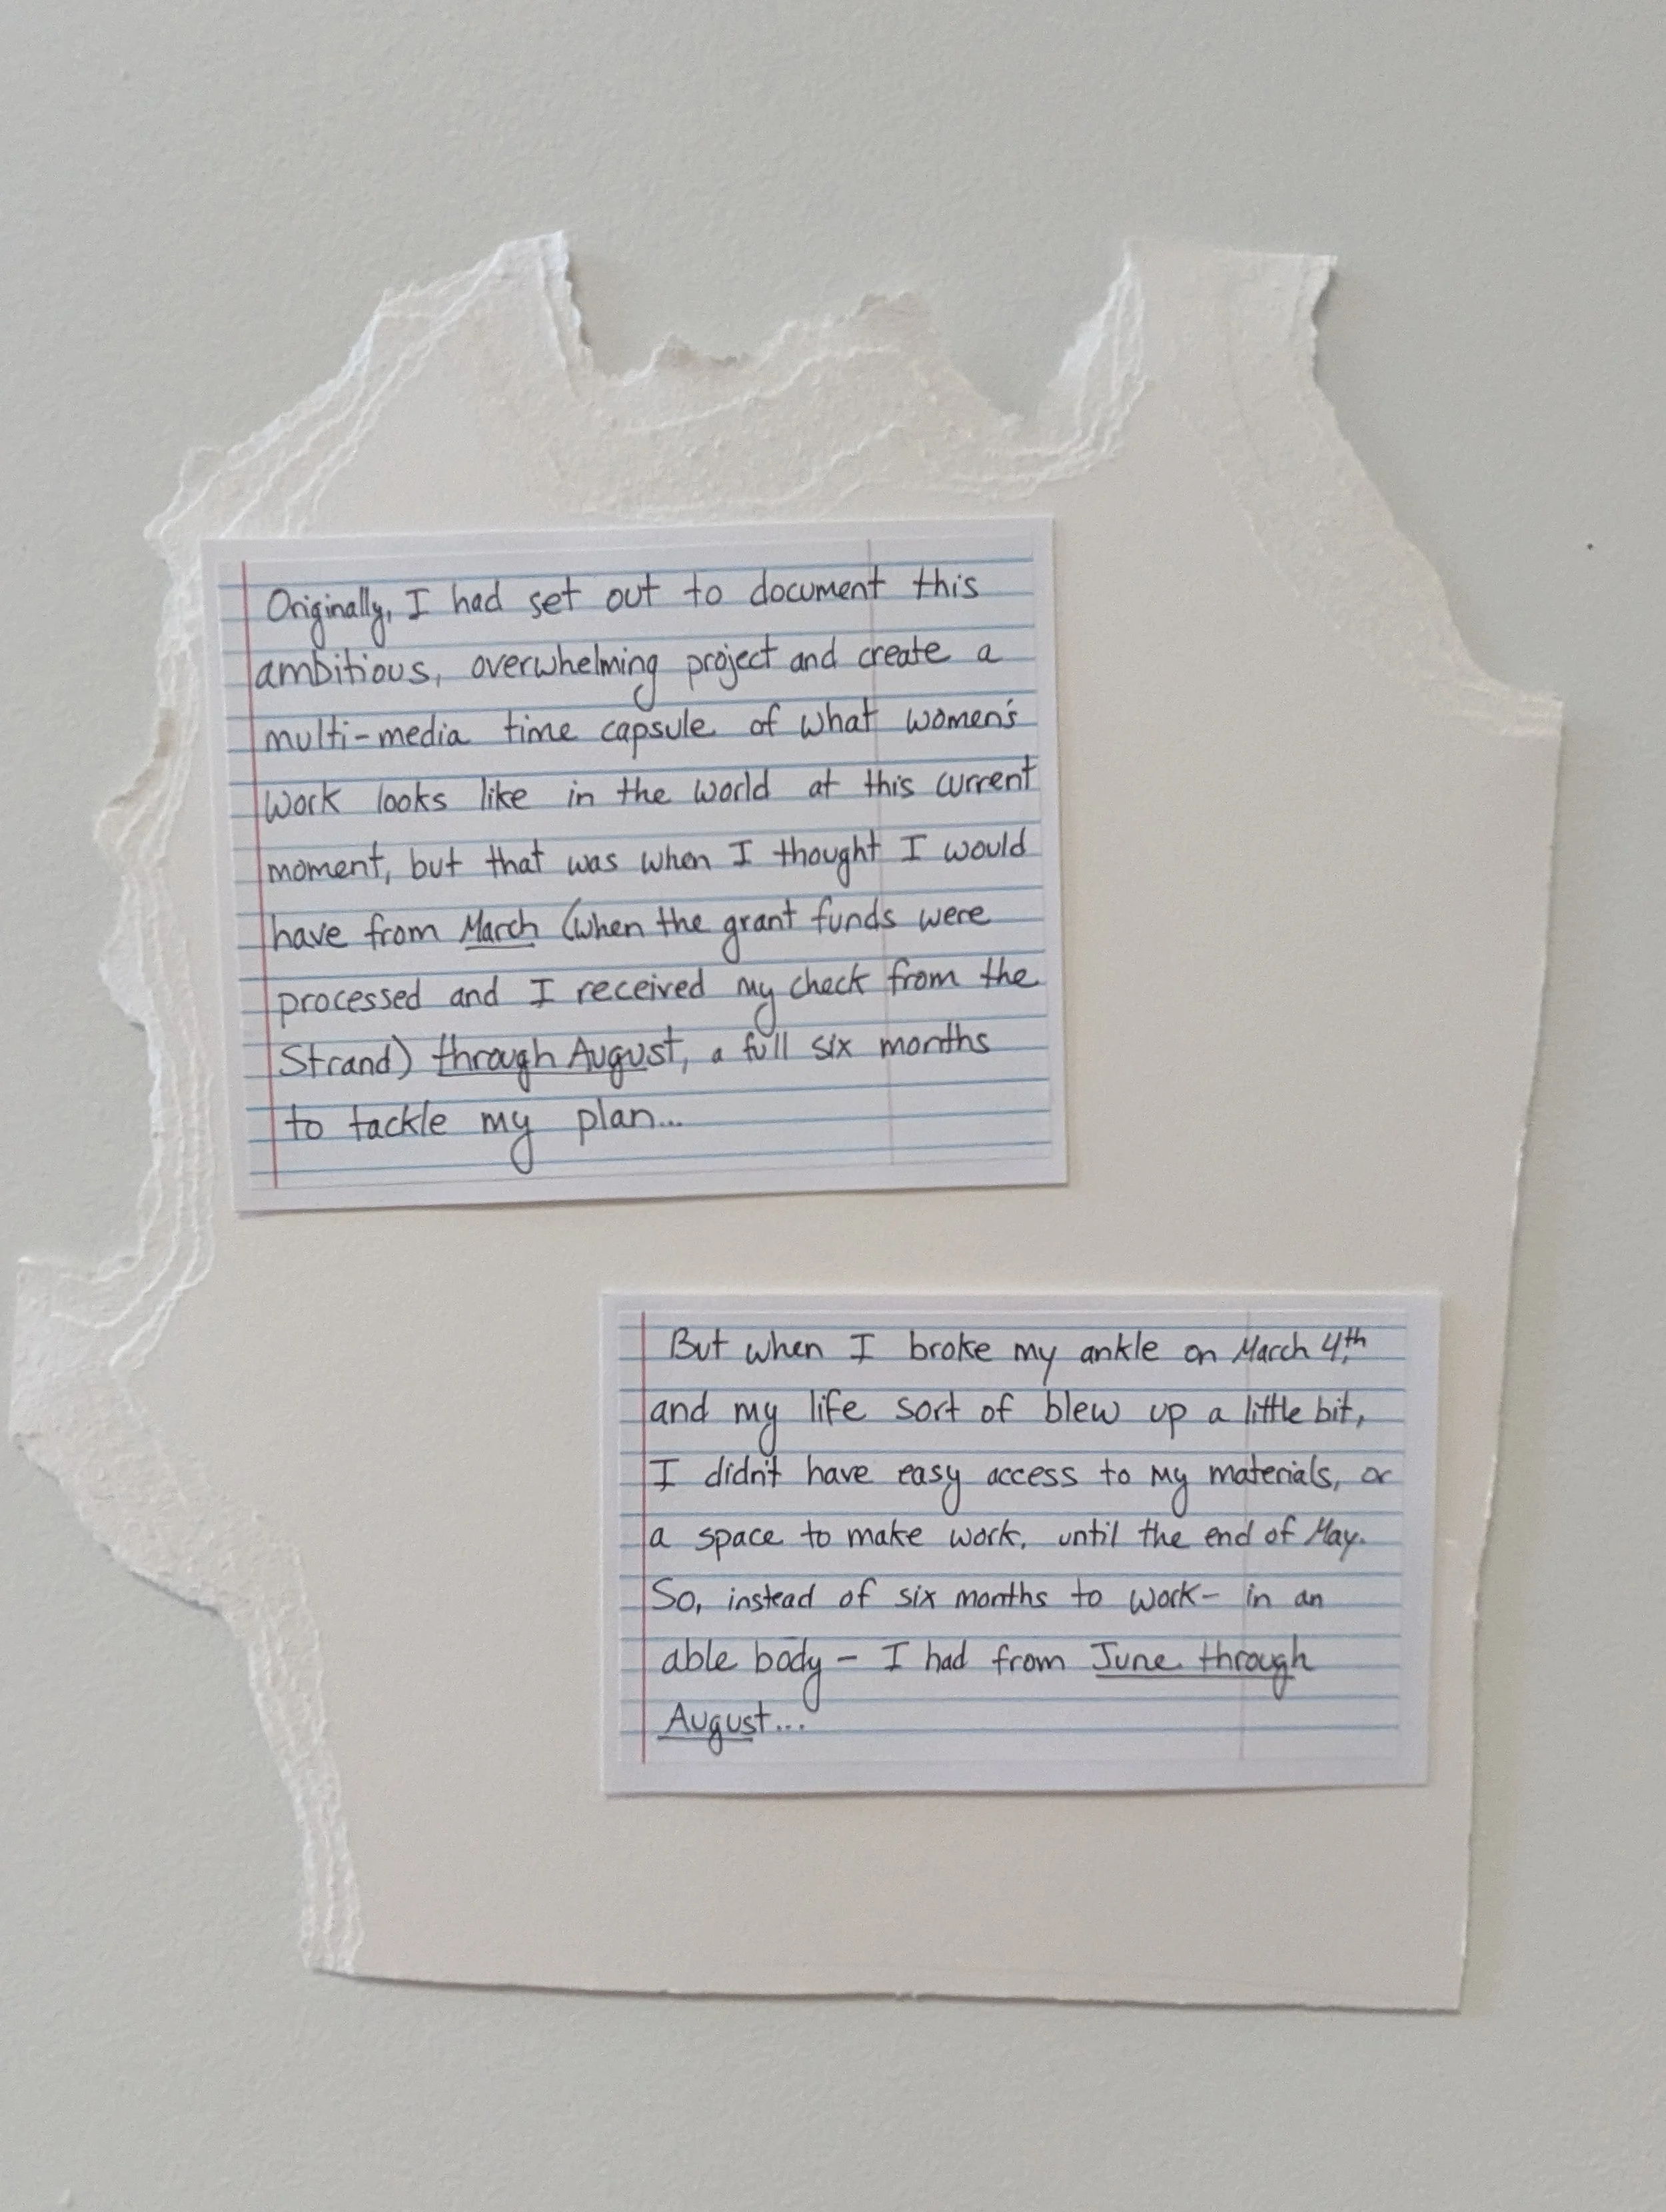 Originally, I had set out to document this
ambitious, overwhelming project and create a
multi-media time capsule of what women's
work looks like in the world at this current
moment, but that was when I thought I would
have from March (when the grant funds were
processed and I received my check from the
Strand) through August, a full six months
to tackle my plan...
But when I broke my ankle on March 4th,
and my life sort of blew up a little bit,
I didn't have easy access to my materials, or
a space to make work, until the end of May.
So, instead of six months to work- in an
able body - I had from June through
August...